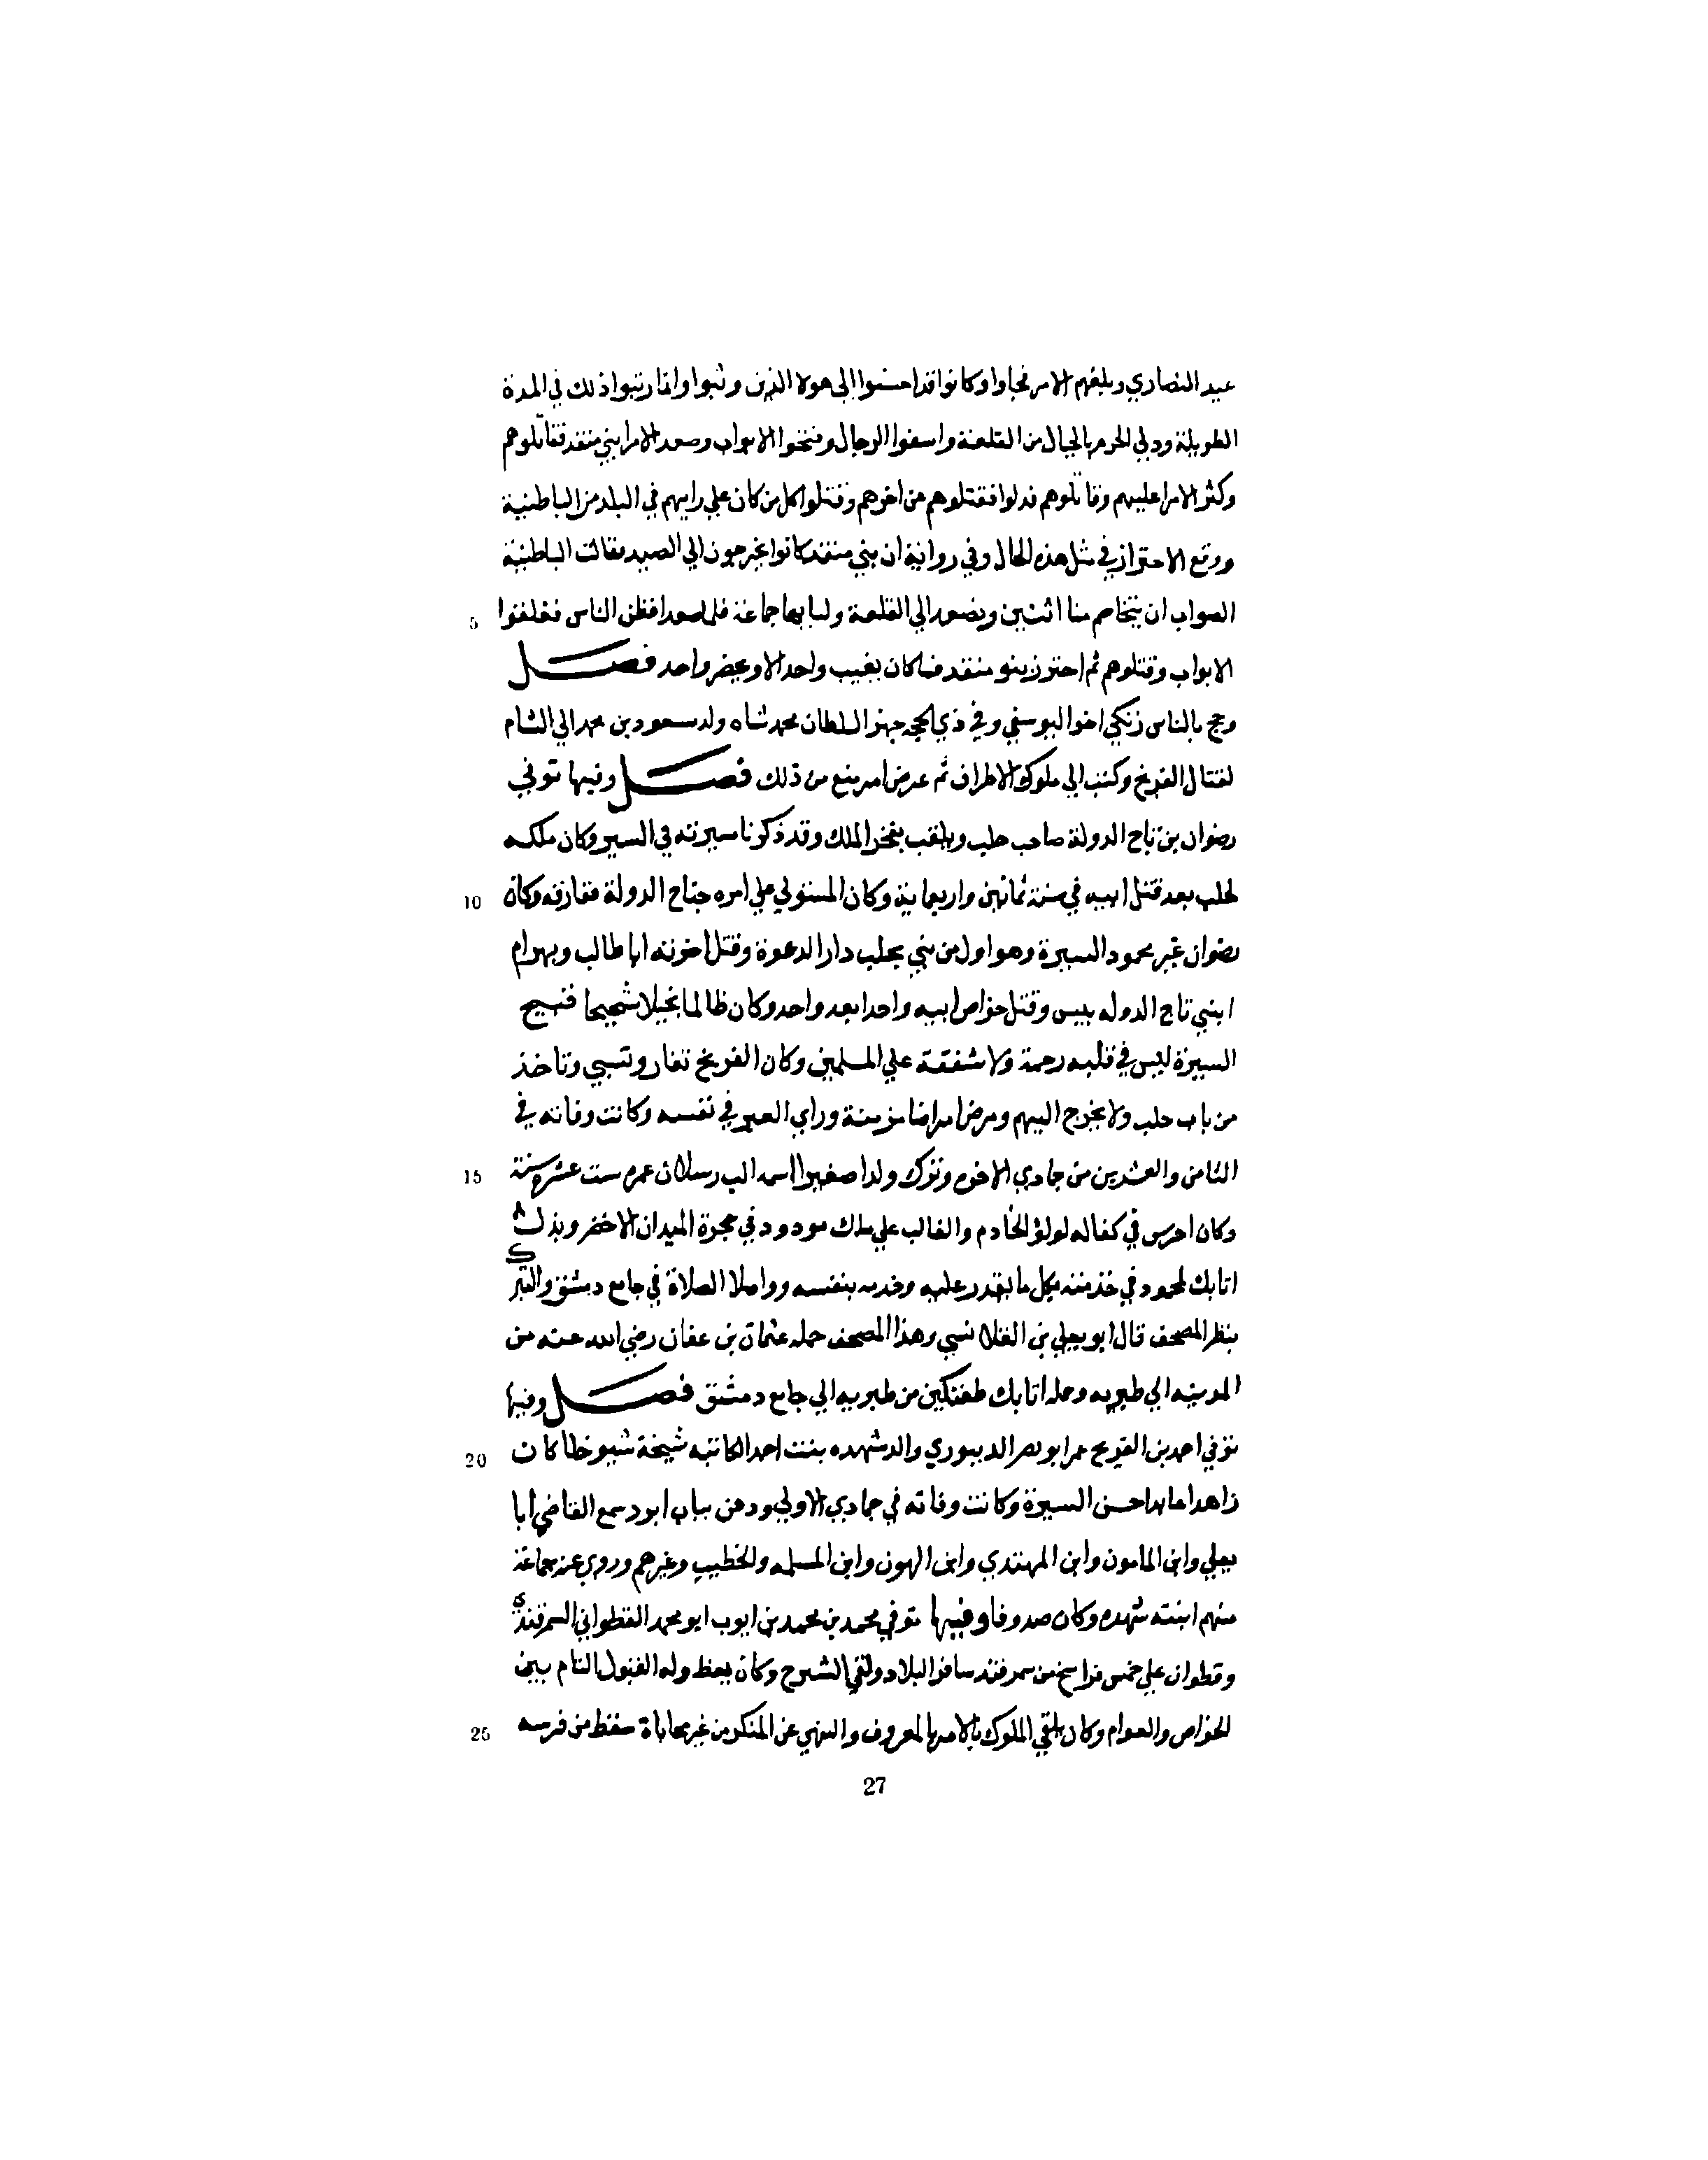 عيد النصاري وبلغهم الامر فجاوا وكانوا قد احسنوا الي هولا الذين وثبوا وانما رتبوا ذلك في المدة
الطويلة ودلي الحرم بالحبال من القلعة واسفوا الرجال وفتحوا الابواب وصعد الامرا بني منقذ فقاتلوهم
وكثر الامرا عليهم وقاتلوهم فدلوا فقتلوهم من اخرهم وقتلوا كل من كان علي رايهم في البلد من الباطنية
ووقع الاحتراز في مثل هذه الحال وفي رواية ان بني منقذ كانوا يخرجون الي الصيد فقالت الباطنية
الصواب ان يتخاصم منا اثنين ونصعد الي القلعة ولنا بها جماعة فلما صعدا فظن الناس فغلقوا
5
الابواب وقتلوهم ثم احترز بنو منقذ فما كان يغيب واحد الا ويحضر واحد فصل
وحج بالناس زنكي اخو البرسقي وفي ذي الحجه جهز السلطان محمد شاه ولده مسعود بن محمد الي الشام
لقتال الفرنج وكتب الي ملوك الاطراف ثم عرض امر منع من ذلك فصل وفيها توفي
رضوان بن تاج الدولة صاحب حلب ويلقب بفخر الملك وقد ذكرنا سيرته في السير وكان ملكه
لحلب بعد قتل ابيه في سنة ثمانين واربعماية وكان المستولي علي امره جناح الدولة ففارقه وكان
10
رضوان غير محمود السيرة وهو اول من بني بحلب دار الدعوة وقتل اخوته ابا طالب وبهرام
ابني تاج الدوله بيس وقتل خواص ابيه واحدا بعد واحد وكان ظالما بخيلا شحيحا قبيح
السيرة ليس في قلبه رحمة ولا شفقة علي المسلمين وكان الفرنج تغار وتسبي وتاخذ
من باب حلب ولا يخرج اليهم ومرض امراضا مزمنة وراي العبر في نفسه وكانت وفاته في
الثامن والعشرين من جمادي الاخره وترك ولدا صغيرا اسمه الب رسلان عمره ست عشره سنة
15
وكان احرس في كفاله لولؤ الخادم والغالب علي ملك مودود في حجرة الميدان الاخضر وبذل
اتابك لمحمود في خدمته بكل ما يقدر عليه وخدمه بنفسه وواصلا الصلاة في جامع دمشق والتبرك
بنظر المصحف قال ابو يعلي بن القلانسي وهذا المصحف حمله عثمان بن عفان رضي الله عنه من
المدينه الي طبريه وحمله اتابك طغتكين من طبريه الي جامع دمشق فصل وفيها
توفي احمد بن الفرج عمر ابو نصر الدينوري والد شهده بنت احمد الكاتبه شيخة شيوخنا كان
20
زاهدا عابدا حسن السيرة وكانت وفاته في جمادي الاولي ودفن بباب ابرد سمع القاضي ابا
يعلي وابن المامون وابن المهتدي وابن النهون وابن المسلمه والخطيب وغيرهم وروي عنه جماعة
منهم ابنته شهده وكان صدوقا وفيها توفي محمد بن محمد بن ايوب ابو محمد القطواني السمرقندي
وقطوان علي خمس فراسخ من سمرقند سافر البلاد ولقي الشيوخ وكان يعظ وله القبول التام بين
الخواص والعوام وكان يلقي الملوك بالامر بالمعروف والنهي عن المنكر من غير محاباة سقط من فرسه
25
27